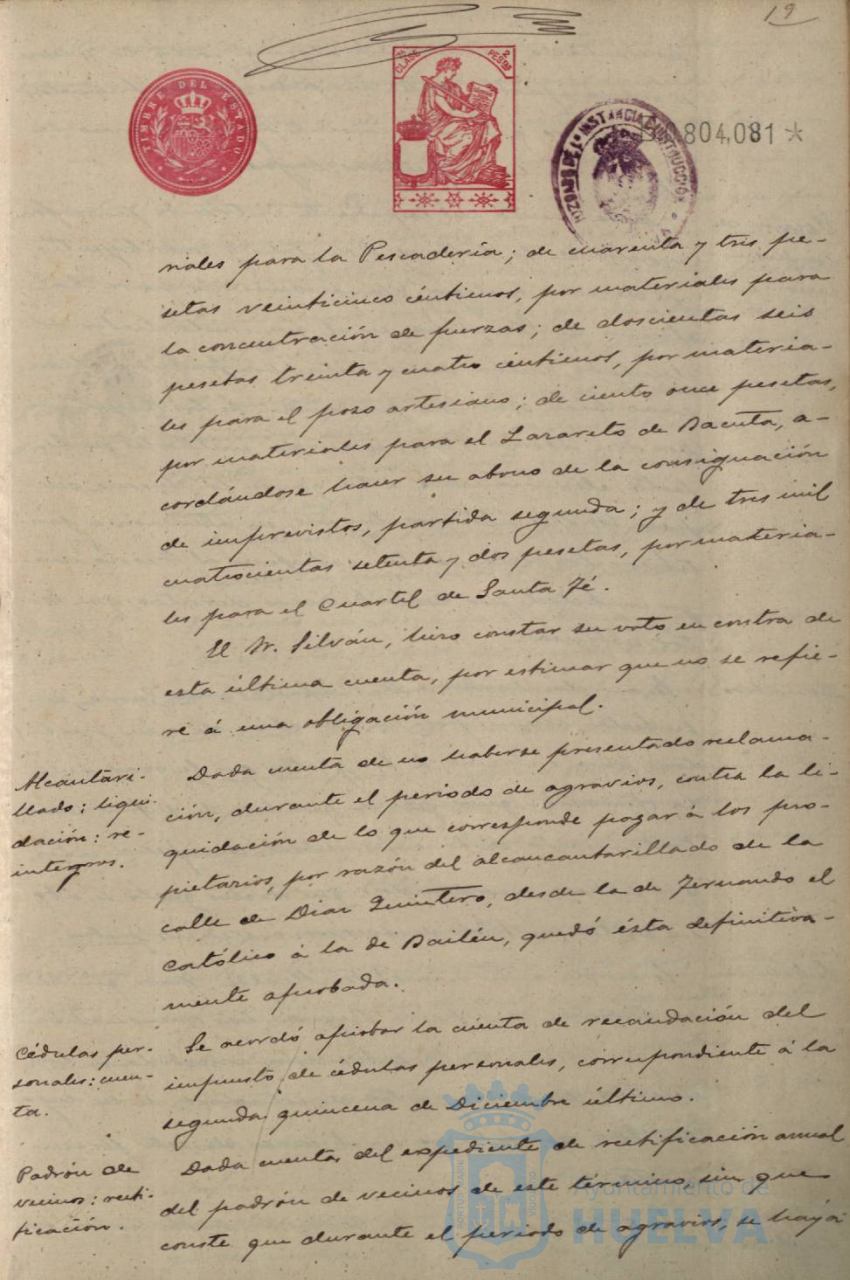 19
TIMBRE DEL ESTADO
CLASE
2 PESETAS
JUZGADO DE 1ª INSTANCIA E INSTRUCCIÓN
804,081 *
riales para la Pescadería; de cuarenta y tres pe-
setas veinticinco céntimos, por materiales para
la concentración de fuerzas; de doscientas seis
pesetas treinta y cuatro céntimos, por materia-
les para el pozo artesiano; de ciento once pesetas,
por materiales para el Lazareto de Bacuta, a-
cordándose hacer su abono de la consignación
de imprevistos, partida segunda; y de tres mil
cuatrocientas setenta y dos pesetas, por materia-
les para el Cuartel de Santa Fé.
El Sr. Silván, hizo constar su voto en contra de
esta última cuenta, por estimar que no se refie-
re á una obligación municipal.
Alcantari-
llado: liqui-
dación: re-
integros.
Dada cuenta de no haberse presentado reclama-
ción, durante el periodo de agravios, contra la li-
quidación de lo que corresponde pagar á los pro-
pietarios, por razón del alcancantarillado de la
calle de Diaz Quintero, desde la de Fernando el
Católico á la de Bailén, quedó ésta definitiva-
mente aprobada.
Cédulas per-
sonales: cuen-
ta.
Se acordó aprobar la cuenta de recaudación del
impuesto de cédulas personales, correspondiente á la
segunda quincena de Diciembre último.
Padrón de
vecinos: recti-
ficación.
Dada cuenta del expediente de rectificación anual
del padrón de vecinos de este término, sin que
conste que durante el periodo de agravios, se haya
Ayuntamiento de
HUELVA